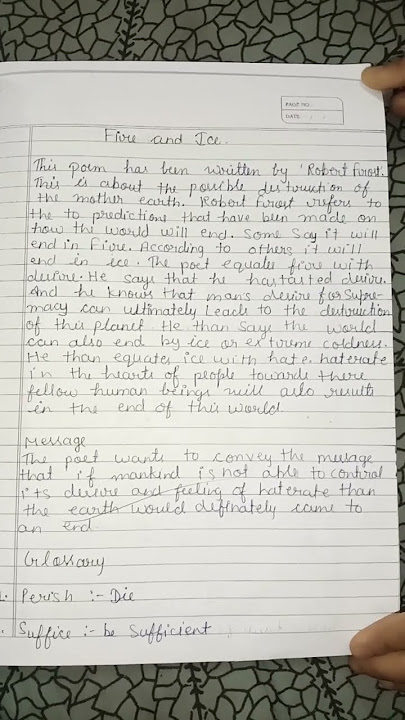 PAGE NO.
DATE / /
Fire and Ice.
This poem has been written by 'Robert Frost'.
This is about the possible destruction of
the mother earth. Robert Frost refers to
the to predictions that have been made on
how the world will end. Some say it will
end in Fire. According to others it will
end in ice. The poet equates fire with
desire. He says that he has tasted desire.
And he knows that man's desire for supre-
macy can ultimately Leads to the destruction
of this planet. He than says the world
can also end by ice or extreme coldness.
He than equates ice with hate. haterate
in the hearts of people towards there
fellow human beings will also results
in the end of this world.
Message
The poet wants to convey the message
that if mankind is not able to control
its desire and feeling of haterate than
the earth would definately came to
an end.
Glossary
1. Perish :- Die
. Suffice :- be Sufficient